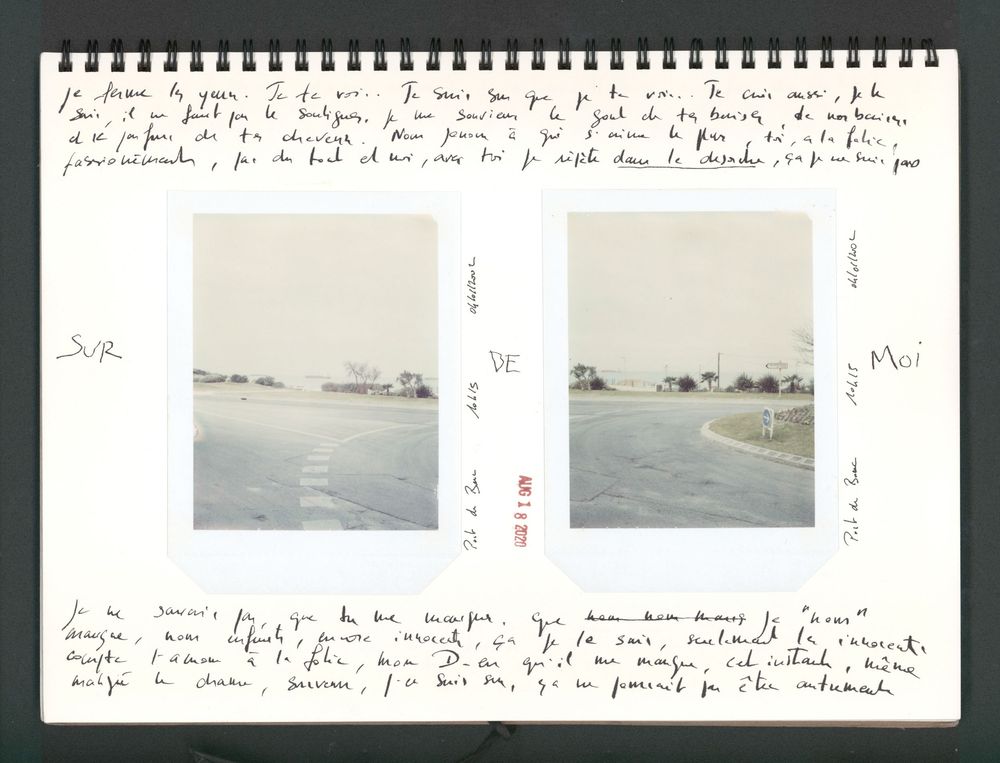 je ferme les yeux. Je te vois. Je suis sur que je te vois. Je suis aussi, je le
sais, il ne faut pas le souligner, je me souviens le gout de tes baisers, de nos baisers
et le parfum de tes cheveux. Nous jouons à qui s'aime le plus, toi, à la folie,
passionément, pas du tout et moi, avec toi je répète dans le désordre, ça je ne suis pas
SUR
DE
MOI
04/01/2002
10h15
Port de Bouc
04/01/2002
10h15
Port de Bouc
AUG 18 2020
Je ne savais pas, que tu me manques. Que nous nous manq Je "nous"
manque, nous enfants, encore innocents, ça je le sais, seulement les innocents
compte l'amour à la folie, mon qu'il me manque, cet instant, même
malgré le drame, survenu, je suis sur, ça ne pouvait pas être autrement